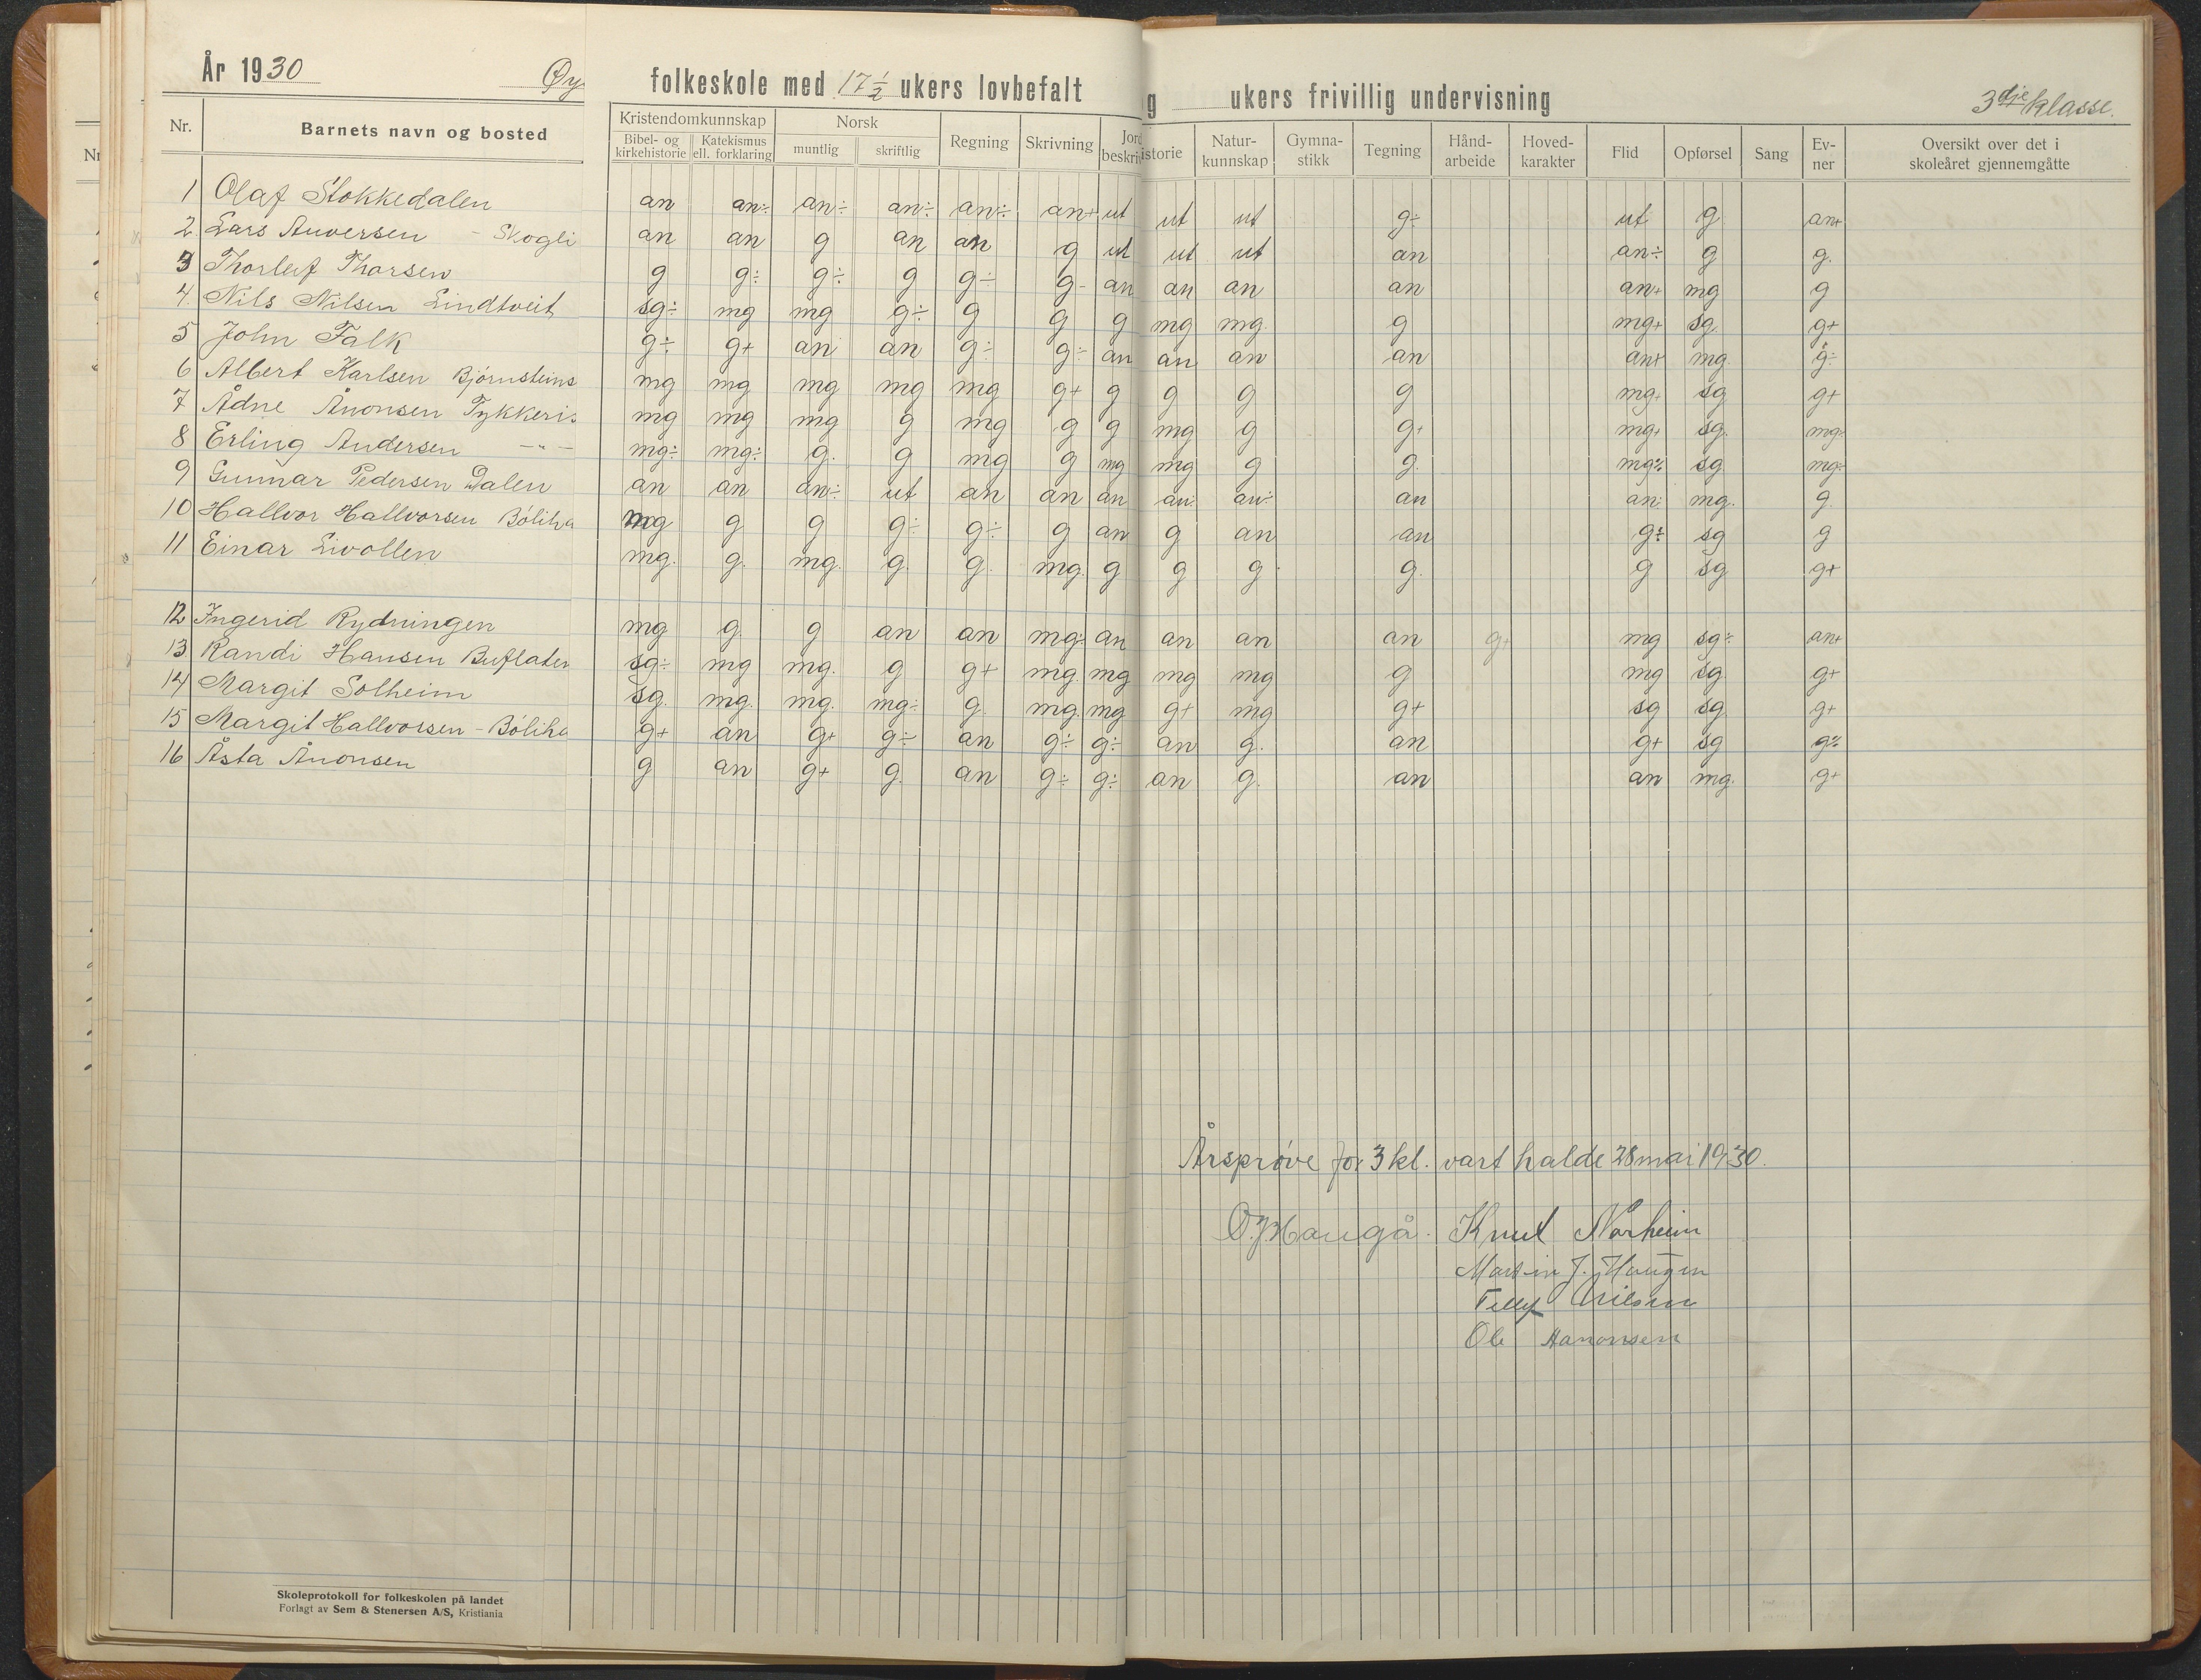 År 1930 Øy folkeskole med 17 ½ ukers lovbefalt g ukers frivillig undervisning 3dje klasse.
Nr. Barnets navn og bosted Kristendomkunnskap Norsk Regning Skrivning Jord beskri istorie Natur-kunnskap Gymna-stikk Tegning Hånd-arbeide Hoved-karakter Flid Opførsel Sang Ev-ner Oversikt over det i skoleåret gjennemgåtte
Bibel- og kirkehistorie Katekismus ell. forklaring muntlig skriftlig
1 Olaf Stokkedalen an an÷ an÷ an÷ an÷ an+ ut ut ut g÷ ut g an+
2 Lars Anversen - Skogli an an g an an g ut ut ut an an÷ g g.
3 Thorleif Thorsen g g÷ g÷ g g÷ g- an an an an an+ mg g
4. Nils Nilsen Lindtveit sg÷ mg mg g÷ g g g mg mg. g mg+ sg g+
5 John Falk g÷ g+ an an g÷ g÷ an an an an an+ mg. g÷
6 Albert Karlsen Bjórnsteins mg mg mg mg mg g+ g g g g mg+ sg g+
7 Ådne Ånonsen Tykkeris mg mg mg g mg g g mg g g+ mg+ sg. mg÷
8 Erling Andersen -"- mg÷ mg÷ g. g mg g mg mg g g. mg% sg mg÷
9 Gunnar Pedersen Dalen an an an÷ ut an an an an÷ an÷ an an÷ mg. g.
10 Hallvor Hallvorsen Bóliha mg g g g÷ g÷ g an g an an g÷ sg g
11 Einar Livollen mg. g. mg. g. g. mg. g g g g. g sg g+
12 Ingerid Rydningen mg g g an an mg÷ an an an an g+ mg sg÷ an+
13 Randi Hansen Buflaten sg÷ mg mg. g g+ mg. mg mg mg g mg sg. g+
14 Margit Solheim sg. mg. mg. mg÷ g. mg. mg g+ mg g+ sg sg g+
15 Margit Hallvorsen - Bóliha g+ an g+ g÷ an g÷ g÷ an g. an g+ sg g%
16 Åsta Ånonsen g an g+ g. an g÷ g÷ an g. an an mg. g+
Årsprøve for 3 kl. vart halde 28 mai 1930.
O. J. Haugå. Knut Norheim
Martin J. Haugen
Tellef Nilsen
Ole Aanonsen
Skoleprotokoll for folkeskolen på landet
Forlagt av Sem & Stenersen A/S, Kristiania